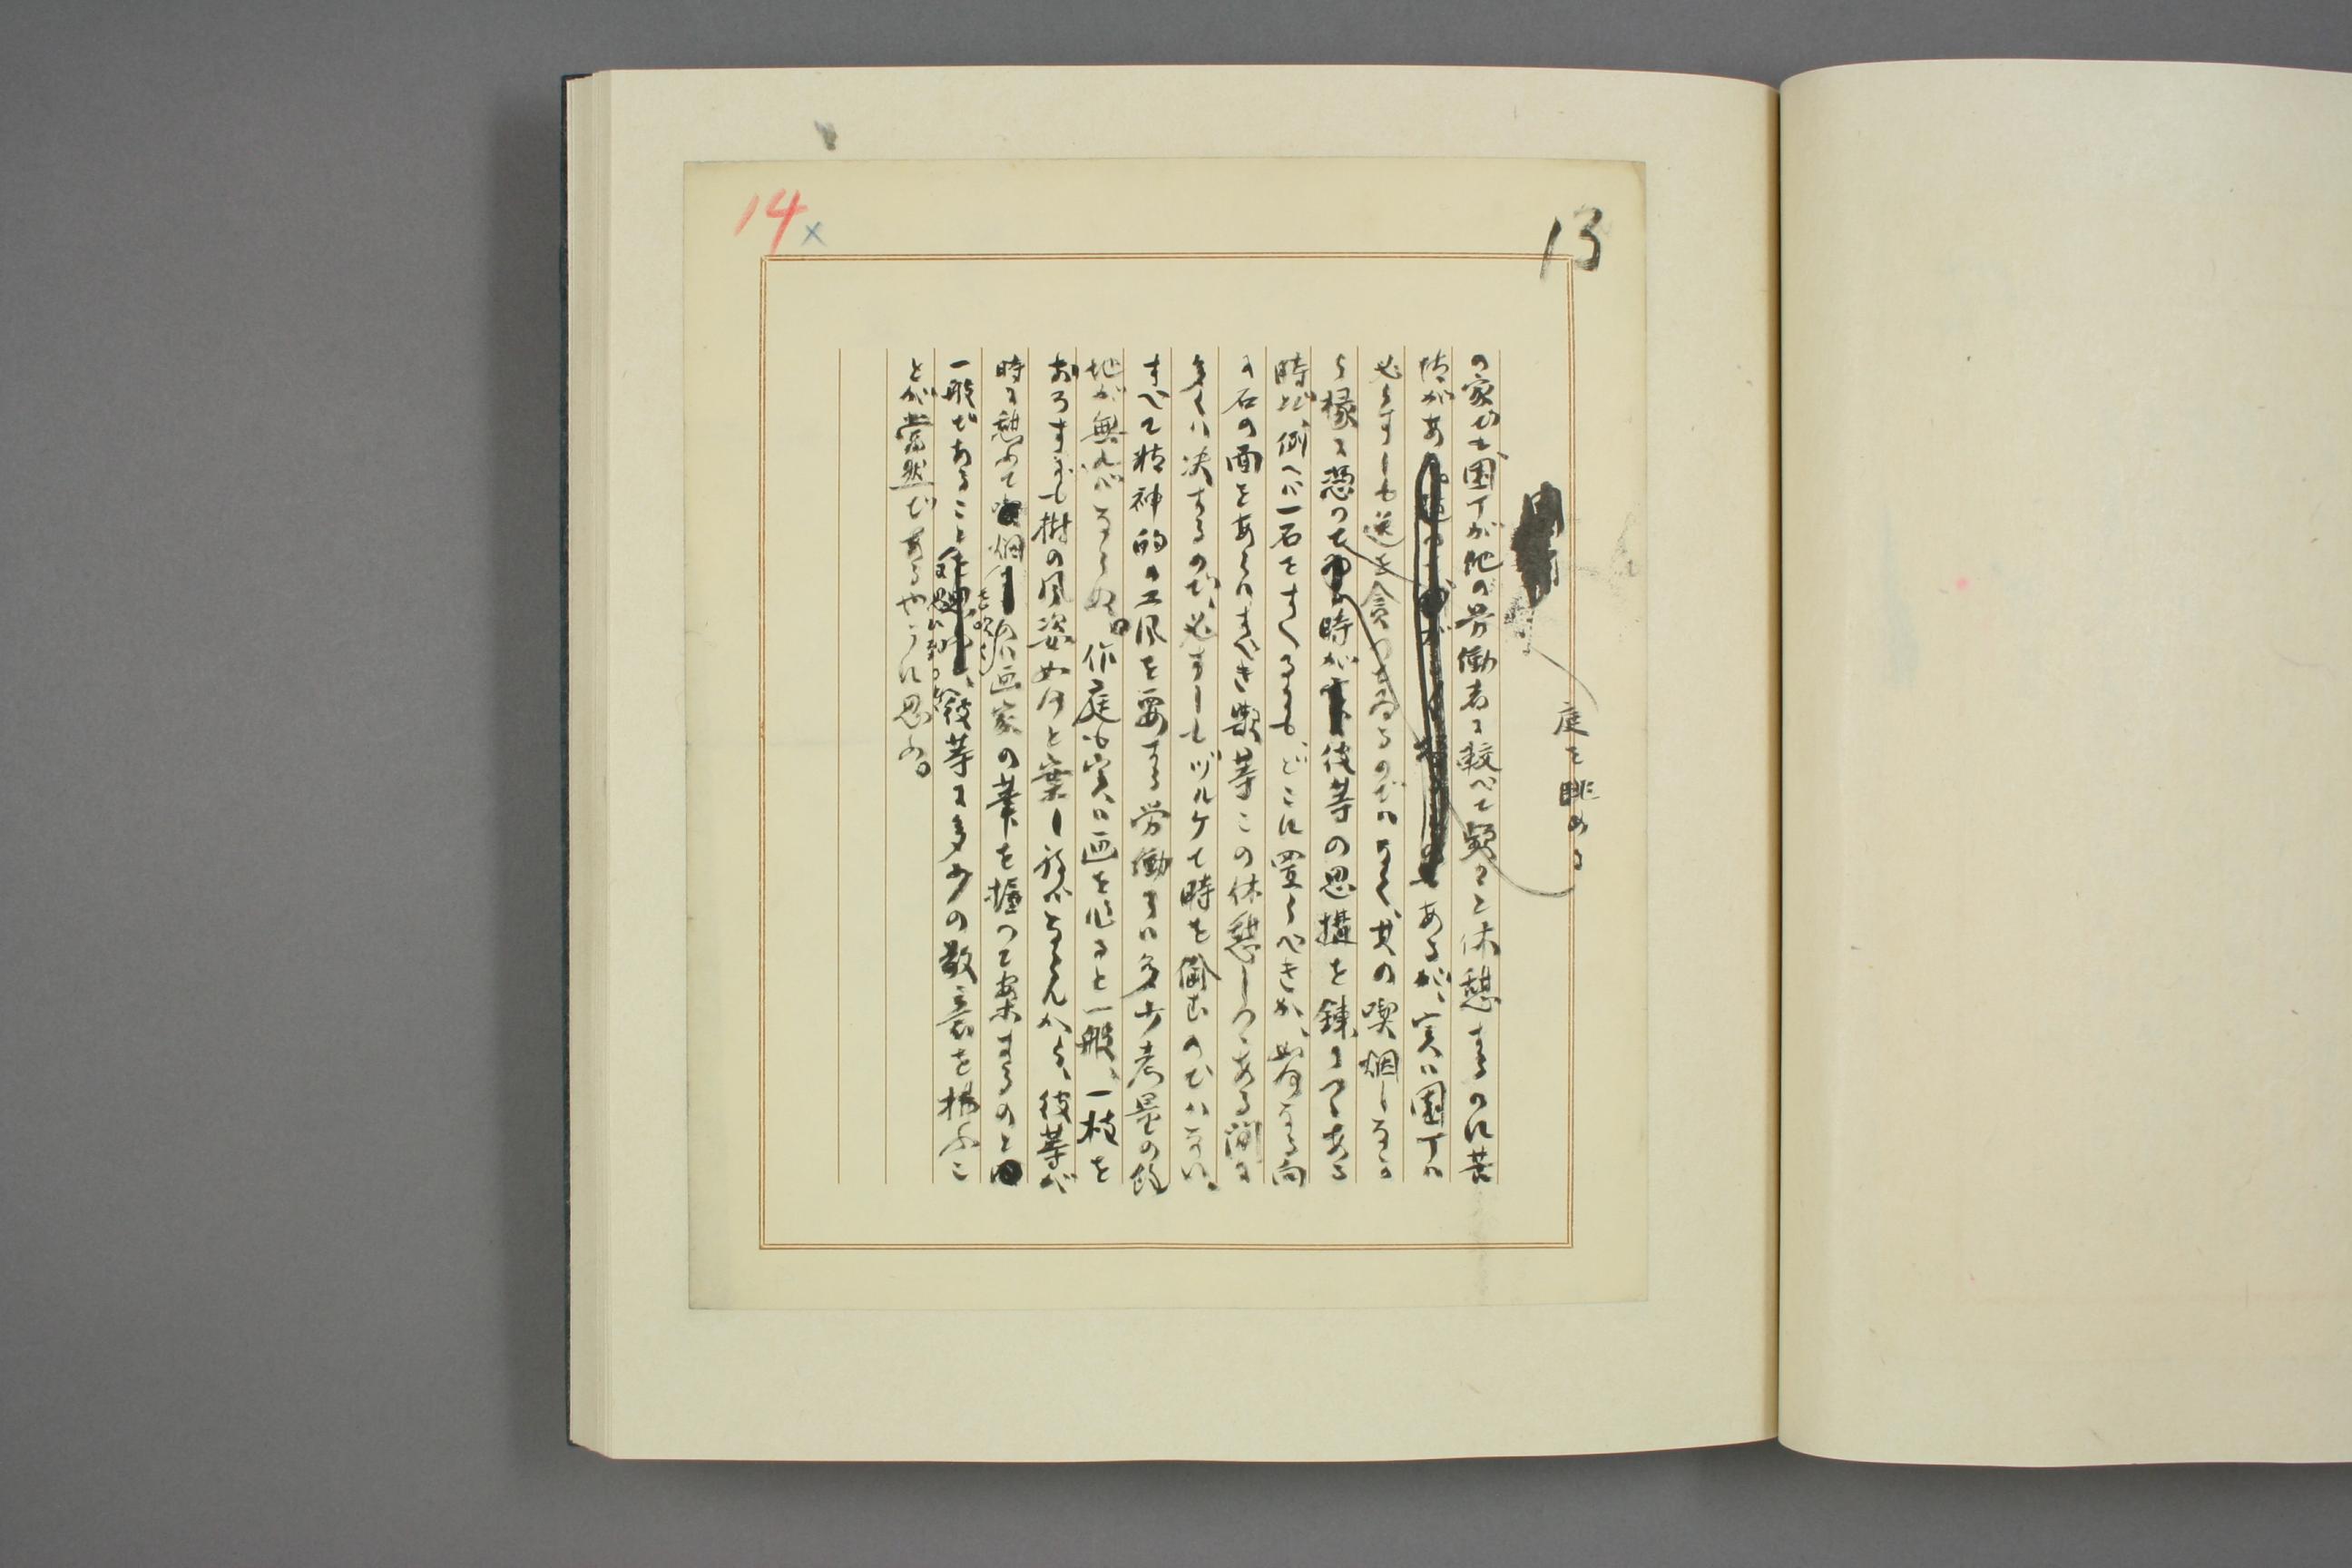 13
14
x
の家でも園丁が他の労働者に較べて頻々と休憩するのに苦
情があ
あるが、実は園丁は
必らずしも逸を貪つて居るのではなく、其の喫烟しなが
ら縁に憑つて
庭を眺める
時が彼等の思構を錬りつゝある
時だ、例へば一石をすゑるにも、どこに置くべきか、如何なる向
に石の面をあらはすべき歟等この休憩しつゝある間に
多くは決するのだ、必ずしもヅルケて時を偸むのではない、
すべて精神的の工風を要する労働には多少考量の余
地が無ればならぬ。作庭も実は画を作ると一般、一枝を
おろすにも樹の風姿如何と案じ
ねばならんから、彼等が
時に憩ふて喫烟
するのは画家の筆を握つて案ずるのと
一般であること
に思ひ到つたら
、彼等に多少の敬意を払ふこ
とが当然であるやうに思ふ。